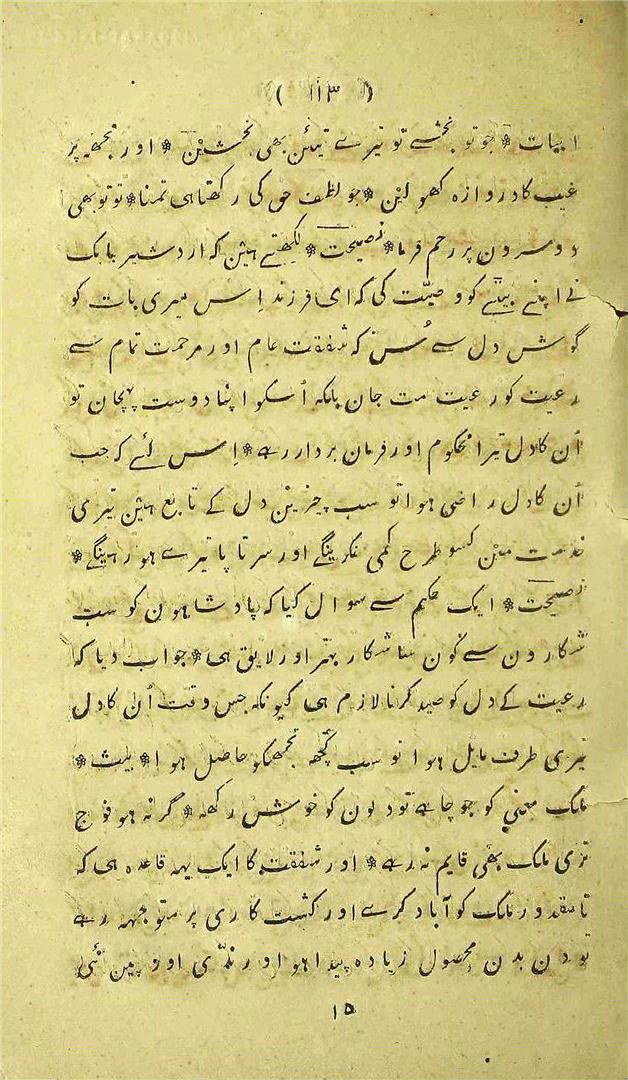 ( ۱۱۳ )
ابیات * جو تو بخشے تو تیرے تیئن بھی بخشین * اور تجھہ پر
غیب کا دروازہ کھولین * جو لطف حق کی رکھتا ہی تمنا * تو تو بھی
دوسرون پر رحم فرما * نصیحت * لکھتے ہین کہ اردشیر بابک
نے اپنے بیٹے کو وصیّت کی کہ ای فرزند اِس میری بات کو
گوش دل سے سُن کہ شفقت عام اور مرحمت تمام سے
رعیت کو رعیت مت جان بلکہ اُسکو اپنا دوست پہچان تو
اُن کا دل تیرا محکوم اور فرمان بردار رہے * اِس لئے کہ جب
اُن کا دل راضی ہوا تو سب چیزین دل کے تابع ہین تیری
خدمت مین کسو طرح کمی نکرینگے اور سرتاپا تیرے ہو رہینگے *
نصیحت * ایک حکیم سے سوال کیا کہ پادشاہون کو سب
شکارون سے کون سا شکار بہتر اور لایق ہی * جواب دیا کہ
رعیت کے دل کو صید کرنا لازم ہی کیونکہ جس وقت اُن کا دل
تیری طرف مایل ہوا تو سب کچھہ تجھکو حاصل ہوا * بیت *
ملک معنی کو جو چاہے تو دلون کو خوش رکھہ * گر نہ ہو فوج
تری ملک بھی قایم نہ رہے * اور شفقت کا ایک یہہ قاعدہ ہی کہ
تا مقدور ملک کو آباد کرے اور کشت کاری پر متوجہہ رہے
تو دن بدن محصول زیادہ پیدا ہو اور ندّی اور پین نئی
۱۵